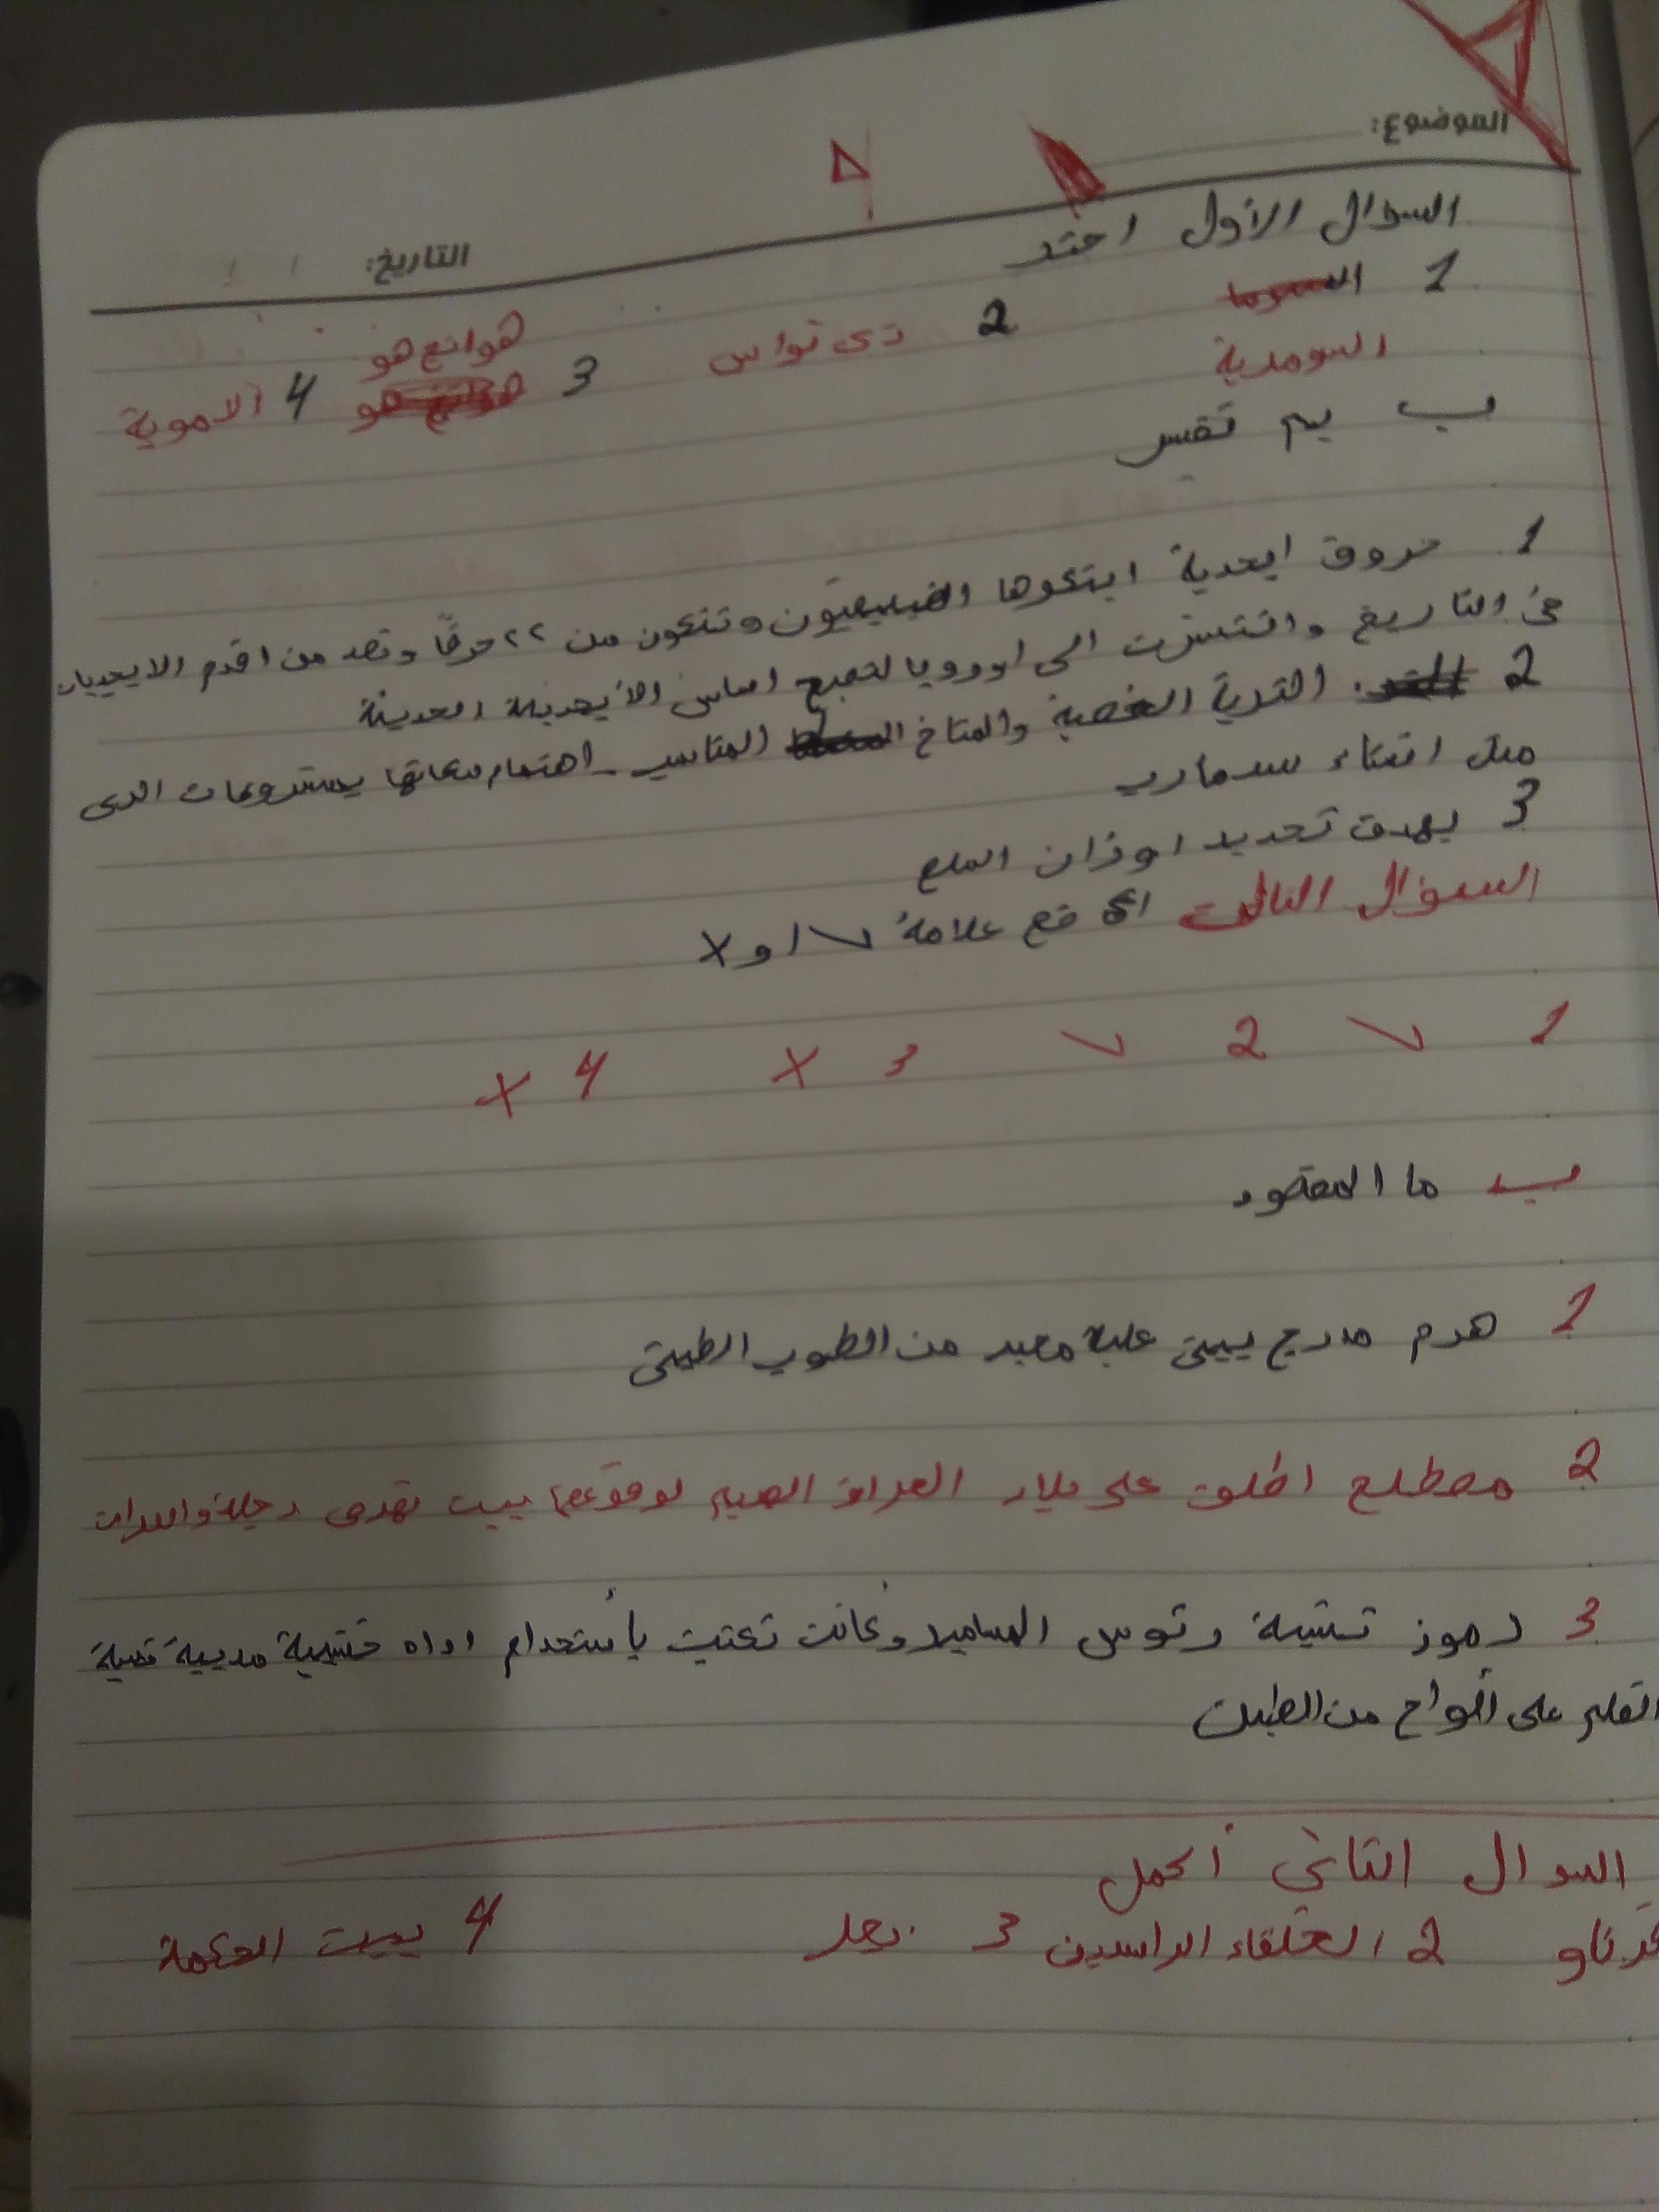 الموضوع:
التاريخ: / /
السؤال الأول اختر
1 السوما
السومرية 2 ذى نواس 3 هوانج هو 4 الاموية
ب بم تفسر
1 حروف ابجدية ابتكوها الفينيقيون وتتكون من ٢٢ حرفًا وتعد من اقدم الابجديات
فى التاريخ وانتشرت الى اوروبا لتصبح اساس الأبجدية الحديثة
2 التربة الخصبة والمناخ المناسب - اهتمام سكانها بمشروعات الرى
مثل انشاء سد مارب
3 بهدف تحديد اوزان السلع
السؤال الثالث ضع علامة √ او X
1 √ 2 √ 3 X 4 X
ب ما المقصود
1 هرم مدرج يبنى عليه معبد من الطوب الطينى
2 مصطلح اطلق على بلاد العراق القديم لوقوعها بين نهرى دجلة والفرات
3 رموز تشبة رئوس المسامير وكانت تكتب بأستخدام اداه خشبية مدببة تشبة
القلم على ألواح من الطين
السوال الثانى أكمل
2 الخلفاء الراشدين 3 4 بيت الحكمة